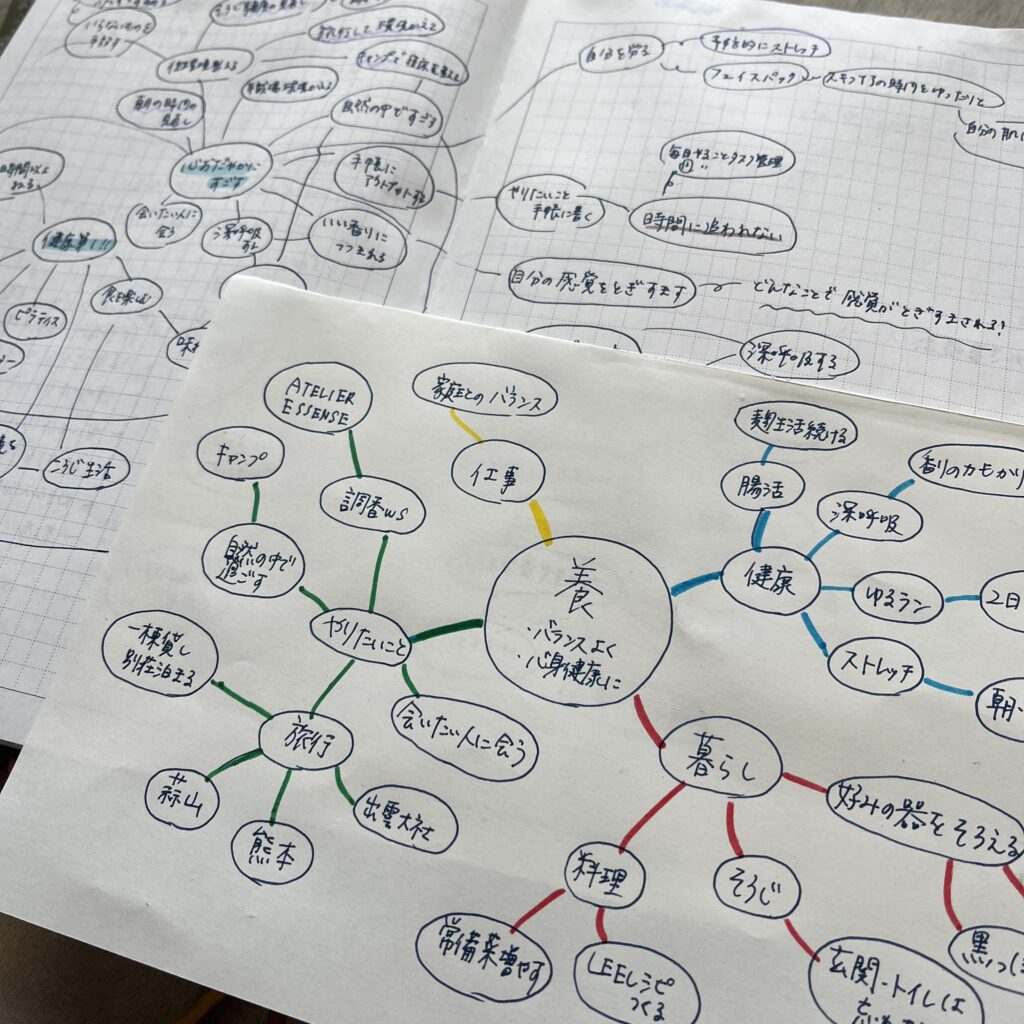 いらないものを
手放す
朝の時間の
見直し
自然の中ですごす
心おだやかに
すごす
手帳に
アウトプットする
会いたい人に
会う
深呼吸
する
いい香りに
つつまれる
健康第1!!
ピラティス
こうじ生活
自分を労る
予防的にストレッチ
フェイスパック
スキンケアの時間をゆったりと
自分の肌に
毎日やることタスク管理
やりたいこと
手帳に書く
時間に追われない
自分の感覚をとぎすます
どんなことで感覚がとぎすまされる?
深呼吸する
ATELIER
ESSENSE
家庭とのバランス
キャンプ
調香WS
仕事
自然の中で
過ごす
やりたいこと
養
・バランスよく
・心身健康に
一棟貸し
別荘泊まる
旅行
会いたい人に会う
蒜山
熊本
出雲大社
麹生活続ける
腸活
香りのカもかり
深呼吸
健康
ゆるラン
2日
ストレッチ
朝・
暮らし
好みの器をそろえる
料理
そうじ
常備菜増やす
LEEレシピ
つくる
玄関・トイレは
黒っぽ